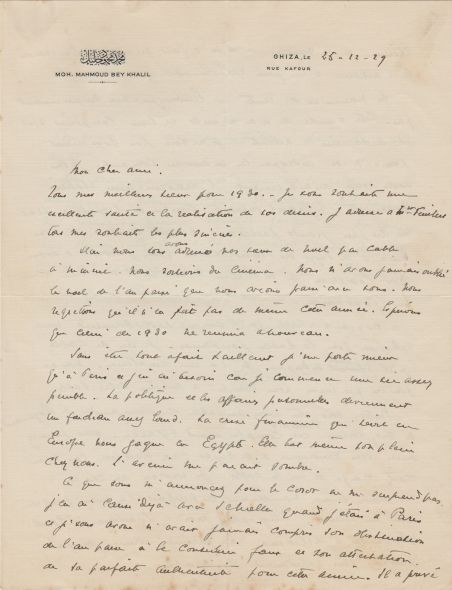 MOH. MAHMOUD BEY KHALIL
GHIZA, LE 25-12-29
RUE KAFOUR
Mon cher ami.
Tous mes meilleurs vœux pour 1930 - Je vous souhaite une
excellente santé et la réalisation de vos désirs. J'adresse à
tous mes souhaits les plus sincères.
Hier nous vous avons adressé nos vœux de Noël par cable
à minuit. Nous sortions du Cinéma. Nous n'avons jamais oublié
le Noël de l'an passé que nous avions passé avec vous. Nous
regrettons qu'il n'en fût pas de même cette année. Espérons
que celui de 1930 nous réunira à nouveau.
Sans être tout à fait vaillant je me porte mieux
qu'à Paris et j'en ai besoin car je commence une vie assez
pénible. La politique et les affaires personnelles deviennent
un fardeau assez lourd. La crise financière qui sévit en
Europe nous gagne en Egypte. Elle bat même son plein
chez nous. L'avenir me paraît sombre.
Ce que vous m'annoncez pour le Corot ne me surprend pas.
J'en ai causé déjà avec Schoeller quand j'étais à Paris
et je vous avoue n'avoir jamais compris son obstination
de l'an passé à le considérer faux et son attestation
de sa parfaite authenticité pour cette année. Il a privé